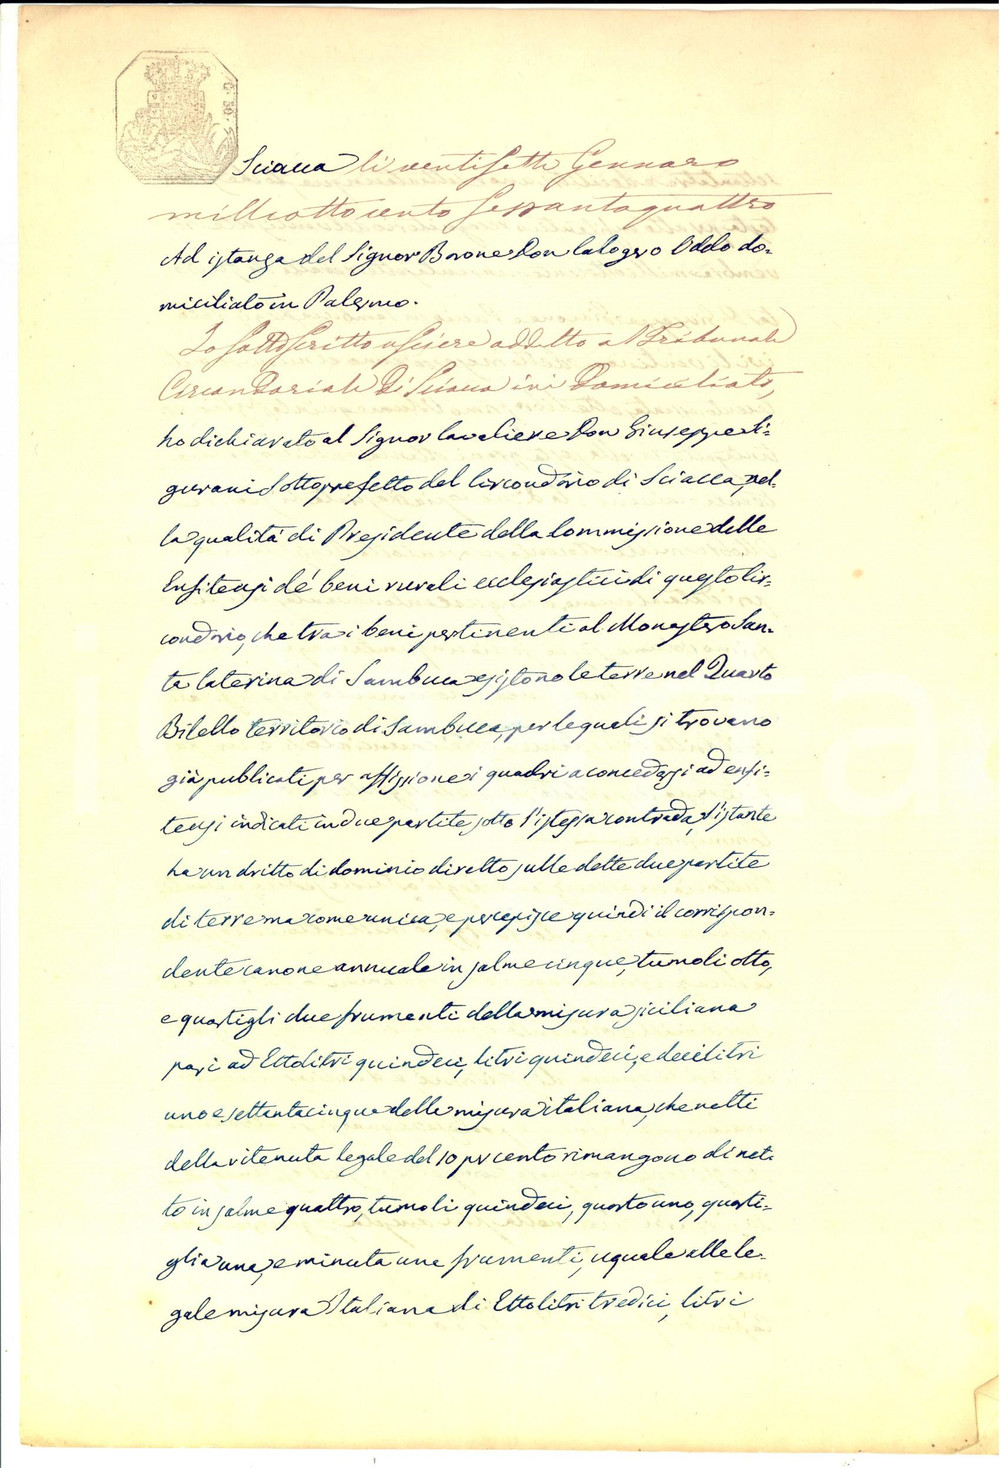 C. 50.
Sciacca li ventisette Gennaro
milleottocento sessantaquattro
Ad istanza del Signor Barone Don Calogero Oddo do-
miciliato in Palermo.
Io sottoscritto usciere addetto al Tribunale
Circondariale di Sciacca ivi domiciliato,
ho dichiarato al Signor Cavaliere Don Giuseppe Li-
gurani Sottoprefetto del Circondario di Sciacca, nel-
la qualità di Presidente della Commissione delle
Enfiteusi de' beni rurali ecclesiastici di questo Cir-
condario, che tra i beni pertinenti al Monastero San-
ta Caterina di Sambuca esistono le terre nel Quarto
Bilello territorio di Sambuca, per le quali si trovano
già pubblicati per affissione i quadri a concedersi ad enfi-
teusi indicati in due partite sotto l'istessa contrada, l'istante
ha un dritto di dominio diretto sulle dette due partite
di terre ma come unica, e percepisce quindi il corrispon-
dente canone annuale in salme cinque, tumoli otto,
e quartigli due frumenti della misura siciliana
pari ad Ettolitri quindeci, litri quindeci, e decilitri
uno e settantacinque della misura italiana, che netti
della ritenuta legale del 10 per cento rimangono di net-
to in salme quattro, tumoli quindeci, quarto uno, quarti-
glia una, e minuta una frumenti, uguale alla le-
gale misura Italiana di Ettolitri tredici, litri